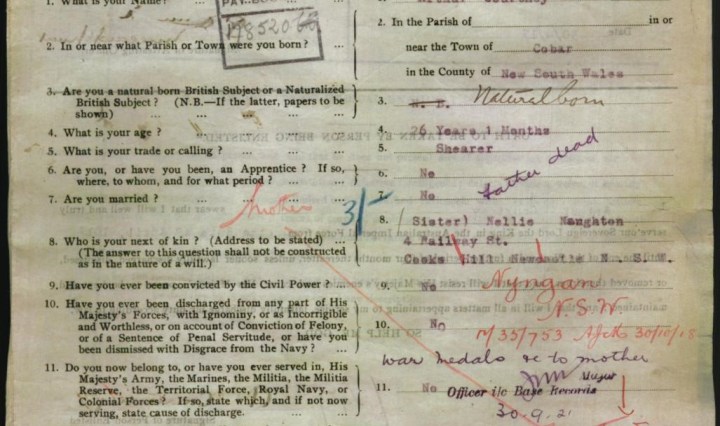 1. What is your Name? ... ...
198520
2. In the Parish of in or
near the Town of Cobar
2. In or near what Parish or Town were you born? ...
in the County of New South Wales
3. Are you a natural born British Subject or a Naturalized
British Subject? (N.B.—If the latter, papers to be
shown) ... ... ... ... ...
3. Natural born
4. What is your age? ... ... ... ...
4. 26 Years 1 Months
5. What is your trade or calling? ... ... ...
5. Shearer
6. Are you, or have you been, an Apprentice? If so,
where, to whom, and for what period? ... ...
6. No
7. Are you married? ... ... ... ...
7. No
Father dead
Mother 3/-
8. (Sister) Nellie Maughton
4 Railway St.
Cooks Hill Newcastle N.S.W.
8. Who is your next of kin? (Address to be stated) ...
(The answer to this question shall not be constructed
as in the nature of a will.) ... ... ...
Nyngan
N.S.W
9. Have you ever been convicted by the Civil Power? ...
9. No
10. Have you ever been discharged from any part of His
Majesty's Forces, with Ignominy, or as Incorrigible
and Worthless, or on account of Conviction of Felony,
or of a Sentence of Penal Servitude, or have you
been dismissed with Disgrace from the Navy? ...
10. No
30/10/18
war medals &c to mother
11. Do you now belong to, or have you ever served in, His
Majesty's Army, the Marines, the Militia, the Militia
Reserve, the Territorial Force, Royal Navy, or
Colonial Forces? If so, state which, and if not now
serving, state cause of discharge. ... ...
11. No
Officer i/c Base Records
30.9.21